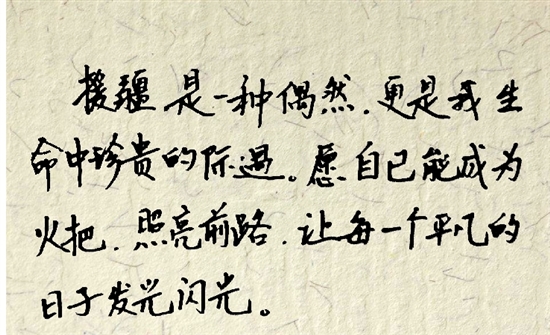 援疆是一种偶然,更是我生
命中珍贵的际遇。愿自己能成为
火把,照亮前路,让每一个平凡的
日子发光闪光。